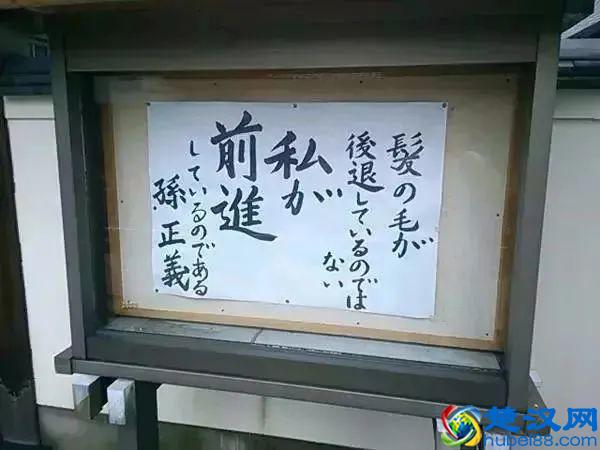 髪の毛が
後退しているのでは
ない
私が
前進
しているのである
孫正義
楚汉网
hubei88.com